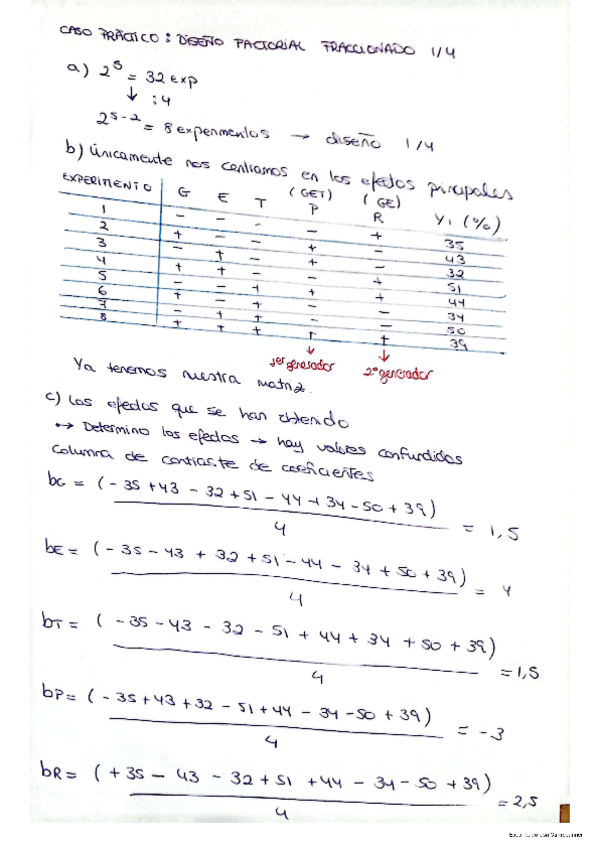 CASO PRÁCTICO: DISEÑO FACTORIAL FRACCIONADO 1/4
a) 2^5 = 32 exp
↓ :4
2^5-2 = 8 experimentos → diseño 1/4
b) Únicamente nos centramos en los efectos principales
EXPERIMENTO G E T (GET) P (GE) R Y1 (%)
1 - - - - + 35
2 + - - + - 43
3 - + - + - 32
4 + + - - + 51
5 - - + + + 44
6 + - + - - 34
7 - + + - - 50
8 + + + + + 39
↓ ↓
1er generador 2º generador
Ya tenemos nuestra matriz.
c) Los efectos que se han obtenido
↔ Determino los efectos → hay valores confundidos
Columna de contraste de coeficientes
bG = (-35 +43 -32 +51 -44 +34 -50 +39) / 4 = 1,5
bE = (-35 -43 + 32 +51 -44 - 34 + 50 +39) / 4 = 4
bT = (-35 -43 - 32 - 51 + 44 + 34 + 50 + 39) / 4 = 1,5
bP = (-35 +43 +32 -51 +44 -34 -50 +39) / 4 = -3
bR = (+35 - 43 - 32 +51 +44 - 34 - 50 +39) / 4 = 2,5